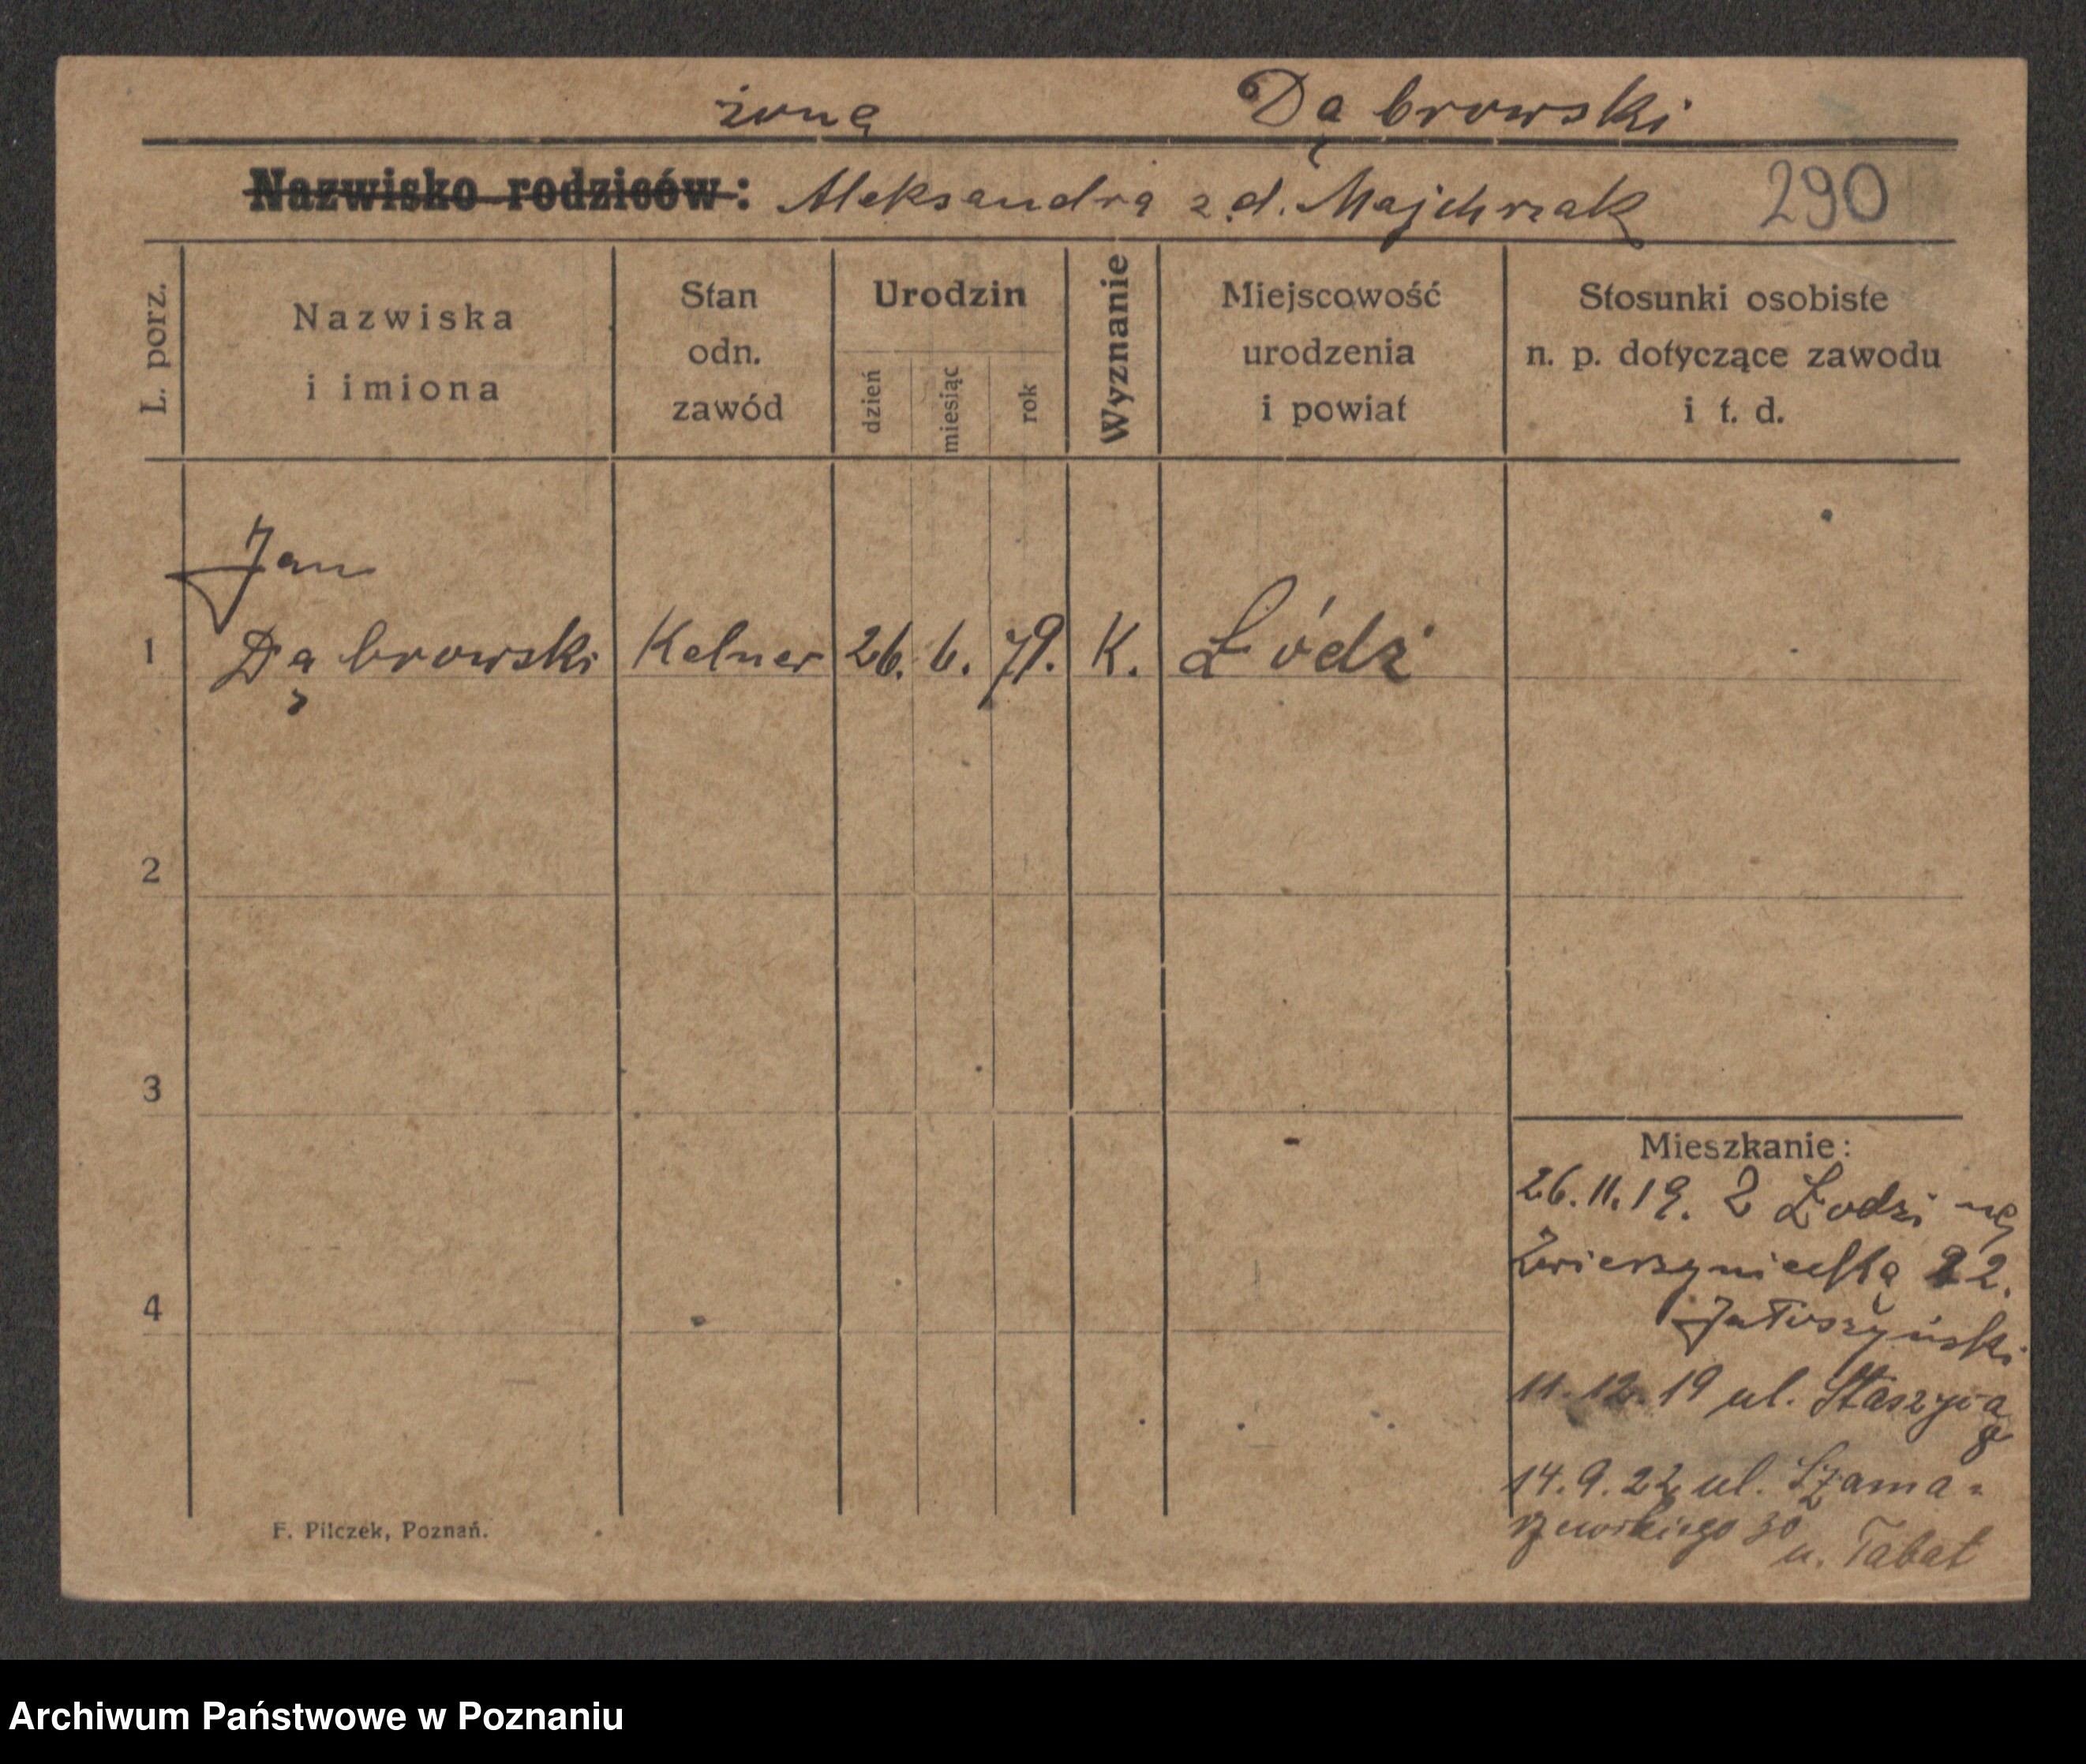 żoną Dąbrowski
Nazwisko rodziców: Aleksandra z.d. Majchrzak 290
L. porz.
Nazwiska
i imiona
Stan
odn.
zawód
Urodzin
dzień
miesiąc
rok
Wyznanie
Miejscowość
urodzenia
i powiat
Stosunki osobiste
n. p. dotyczące zawodu
i t. d.
Jan
1 Dąbrowski Kelner 26. 6. 79. K. Łódź
2
3
4
Mieszkanie:
26.11.19. z Łodzi na
Zwierzyniecką 22.
11.12.19 ul. Staszyca
14.9.22 ul. Szama-
rzewskiego 30
F. Pilczek, Poznań.
Archiwum Państwowe w Poznaniu